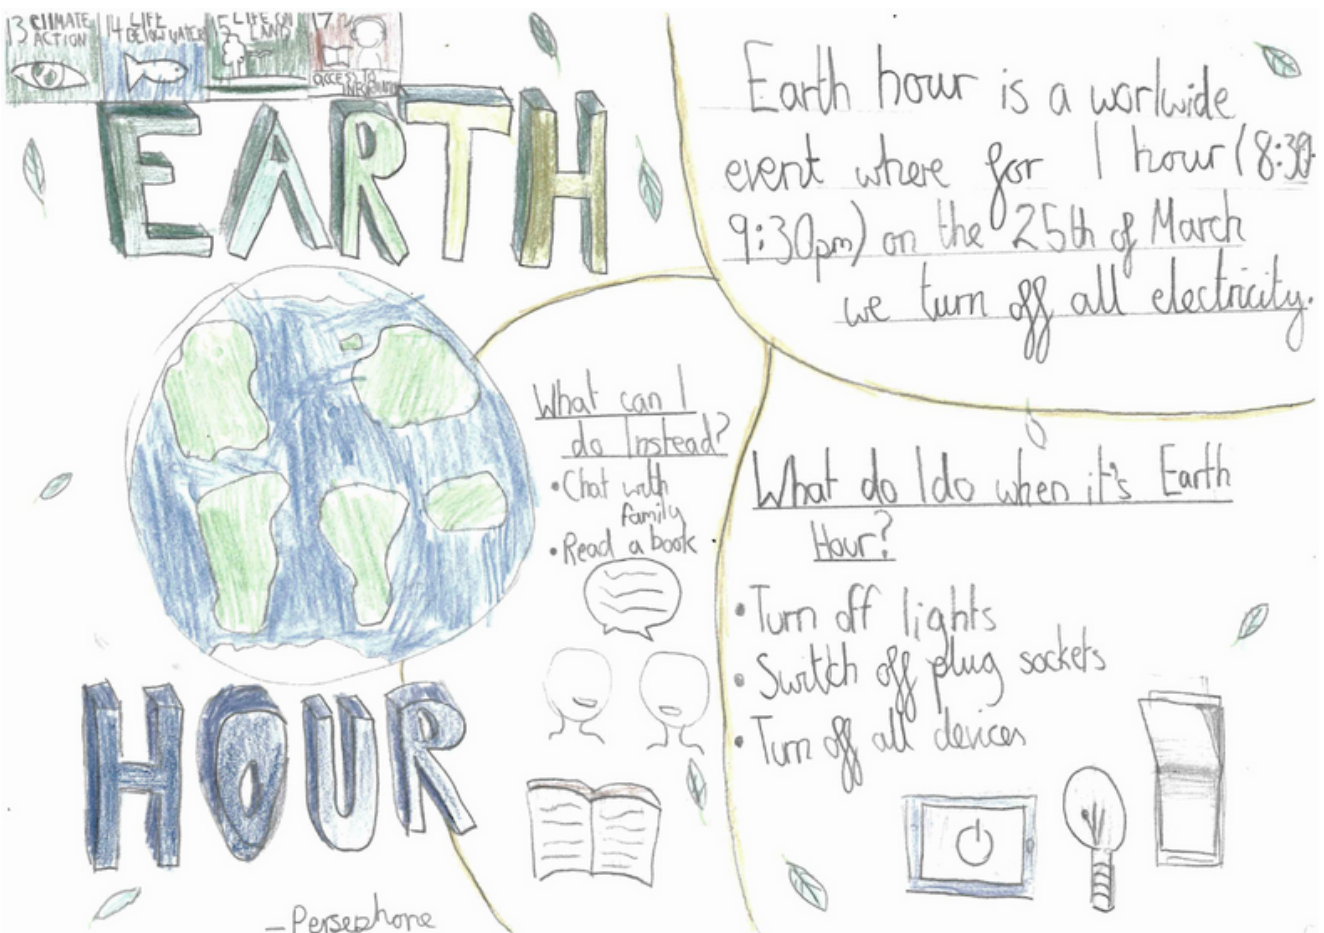 13 CLIMATE
ACTION
14 LIFE
BELOW WATER
15 LIFE ON
LAND
17
ACCESS TO
EARTH
HOUR
Earth hour is a worlwide
event where for 1 hour (8:30-
9:30pm) on the 25th of March
we turn off all electricity.
What can I
do Instead?
• Chat with
family
• Read a book
What do I do when it's Earth
Hour?
• Turn off lights
• Switch off plug sockets
• Turn off all devices
- Persephone